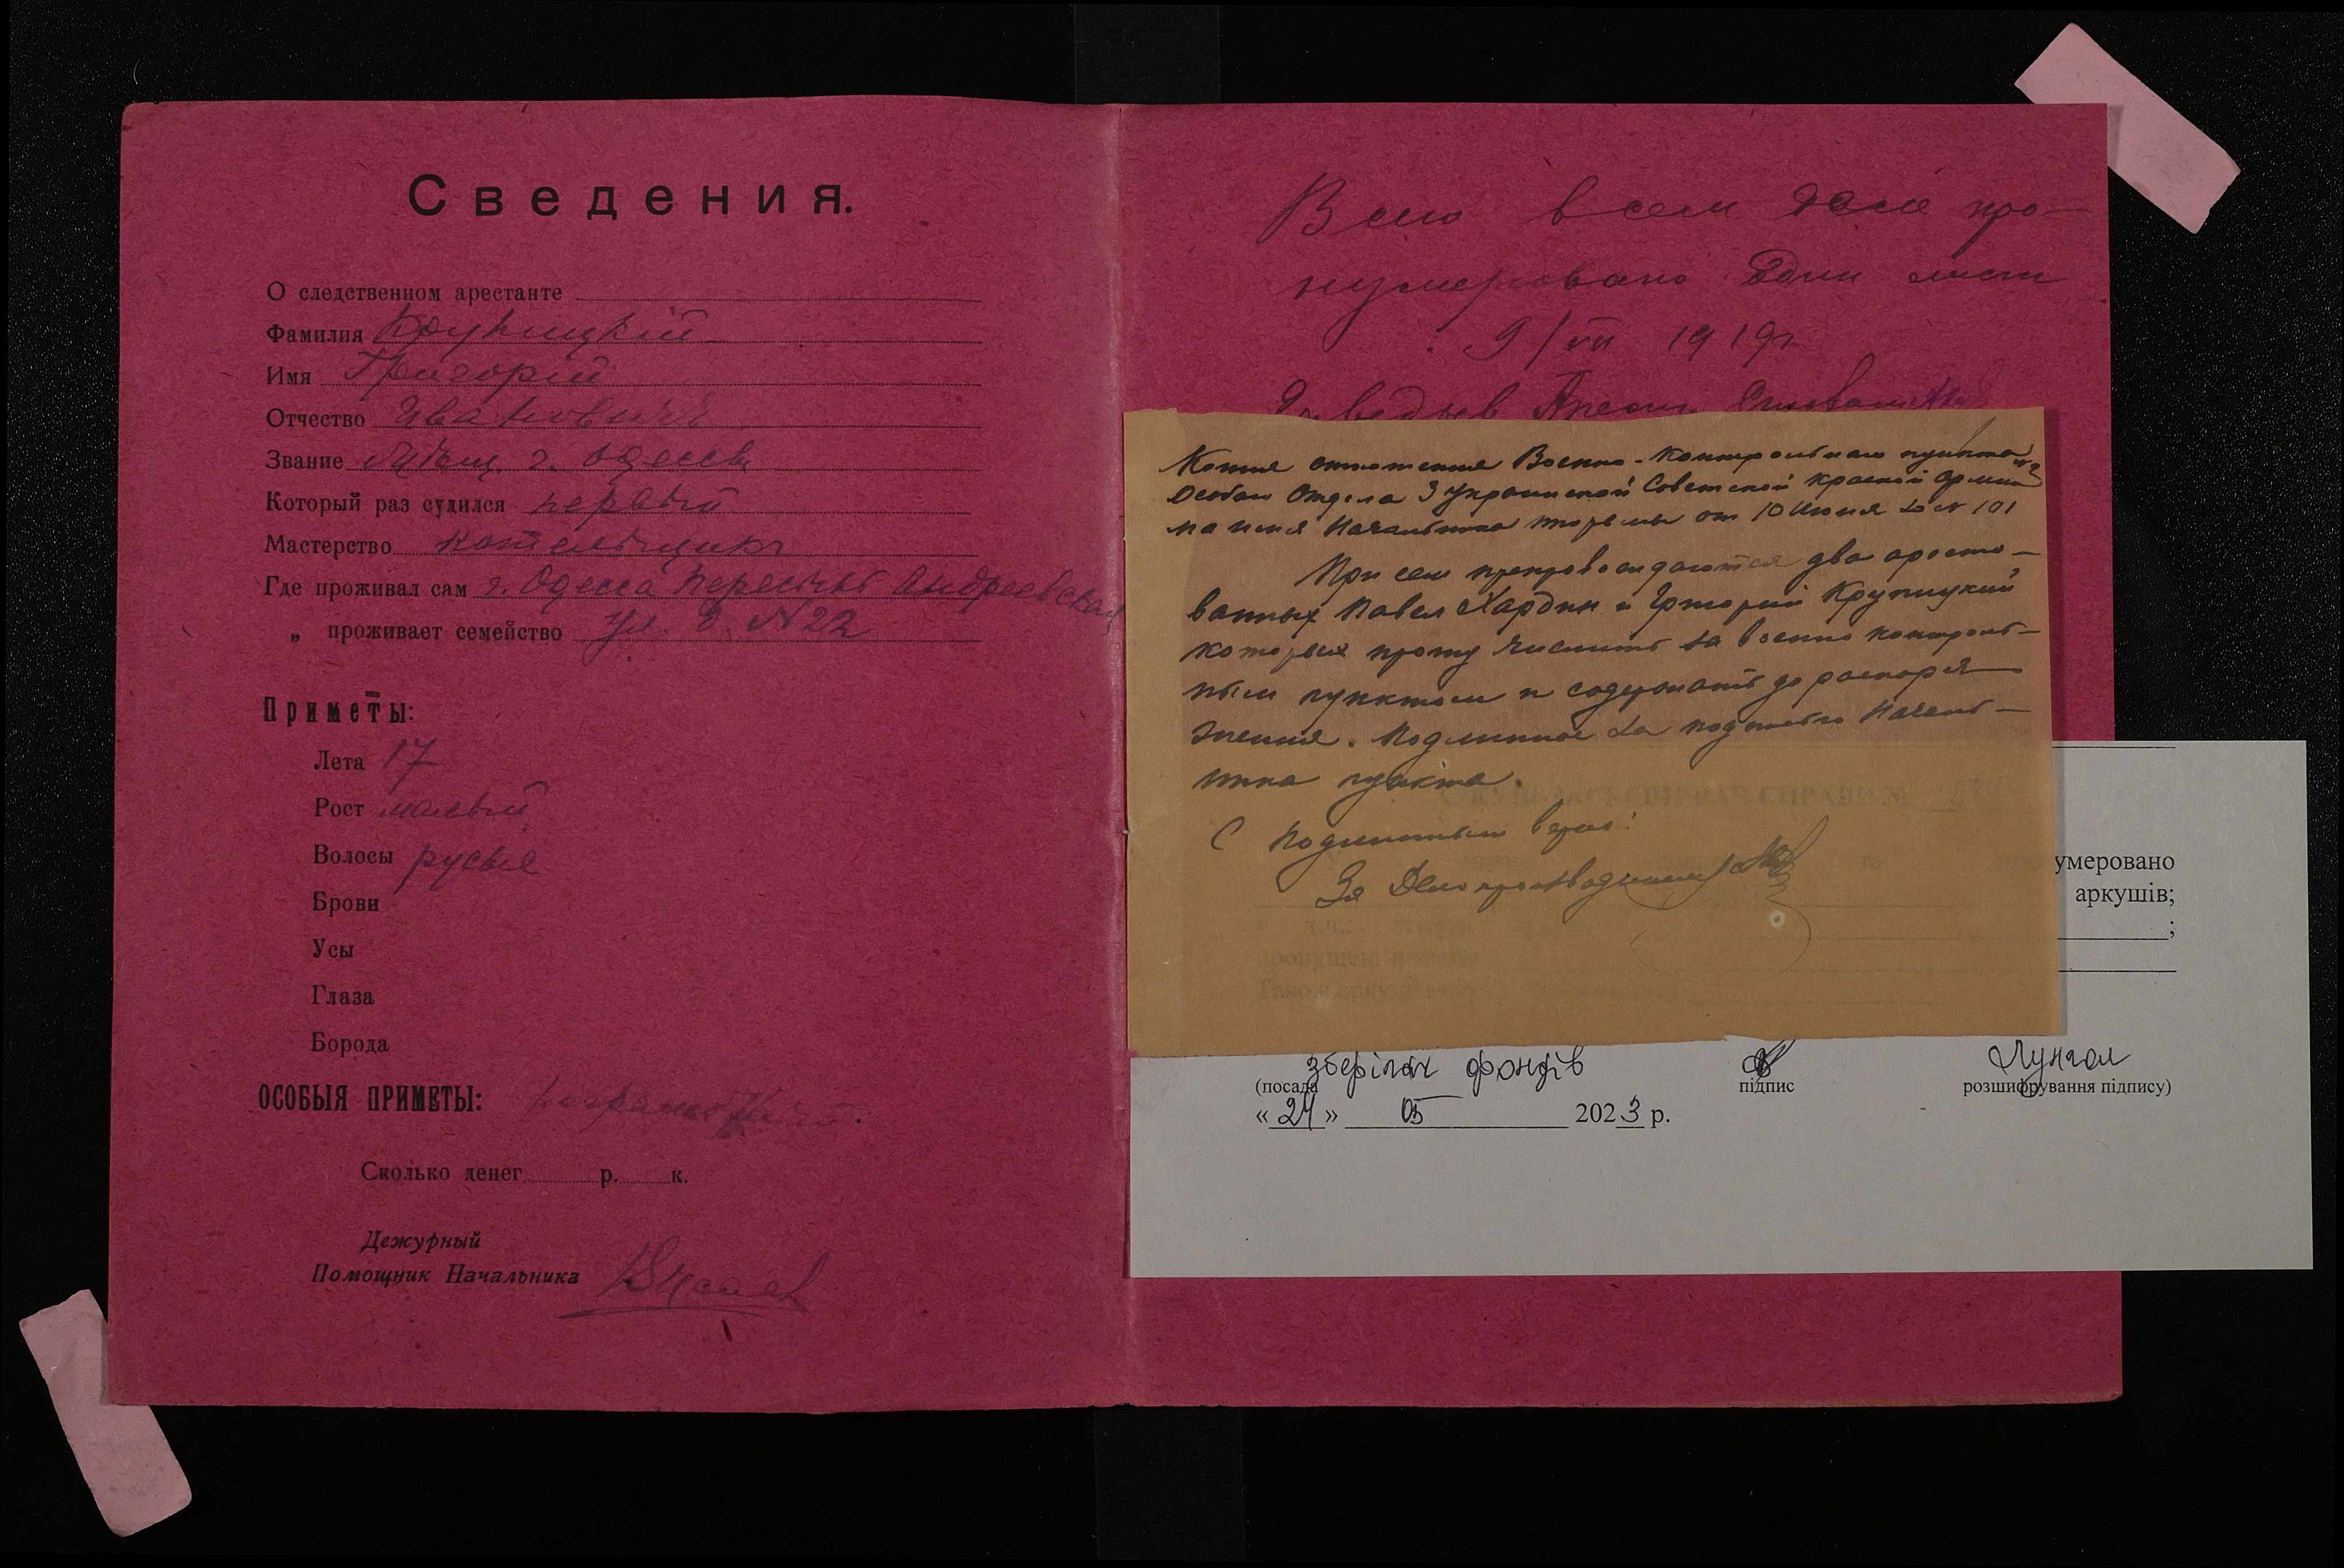 Сведения.
О следственном арестанте
Фамилия Крупицкій
Имя Григорій
Отчество Ивановичъ
Звание Мѣщ. г. Одессы
Который раз судился первый
Мастерство котельщикъ
Где проживал сам г. Одесса Пересыпь Андреевская
„ проживает семейство ул. д. № 22
Приметы:
Лета 17
Рост малый
Волосы русые
Брови
Усы
Глаза
Борода
ОСОБЫЯ ПРИМЕТЫ:
Сколько денег р. к.
Дежурный
Помощник Начальника
Всего в сем деле про-
нумеровано один лист
9/VII 1919г
Копия отношения Военно-Контрольного пункта №2
Особого Отдела 3 Украинской Советской Красной Армии
на имя Начальника тюрьмы от 10 Июня за № 101
При сем препровождаются два аресто-
ванных Павел Хардин и Григорий Крупицкий
которых прошу числить за военно контроль-
ным пунктом и содержать до распоря-
жения. Подлинное за подписью Началь-
ника пункта.
С подлинным верно:
За Делопроизводителя
умеровано
аркушів;
;
зберігач фондів
(посада підпис розшифрування підпису)
«24» 05 2023 р.